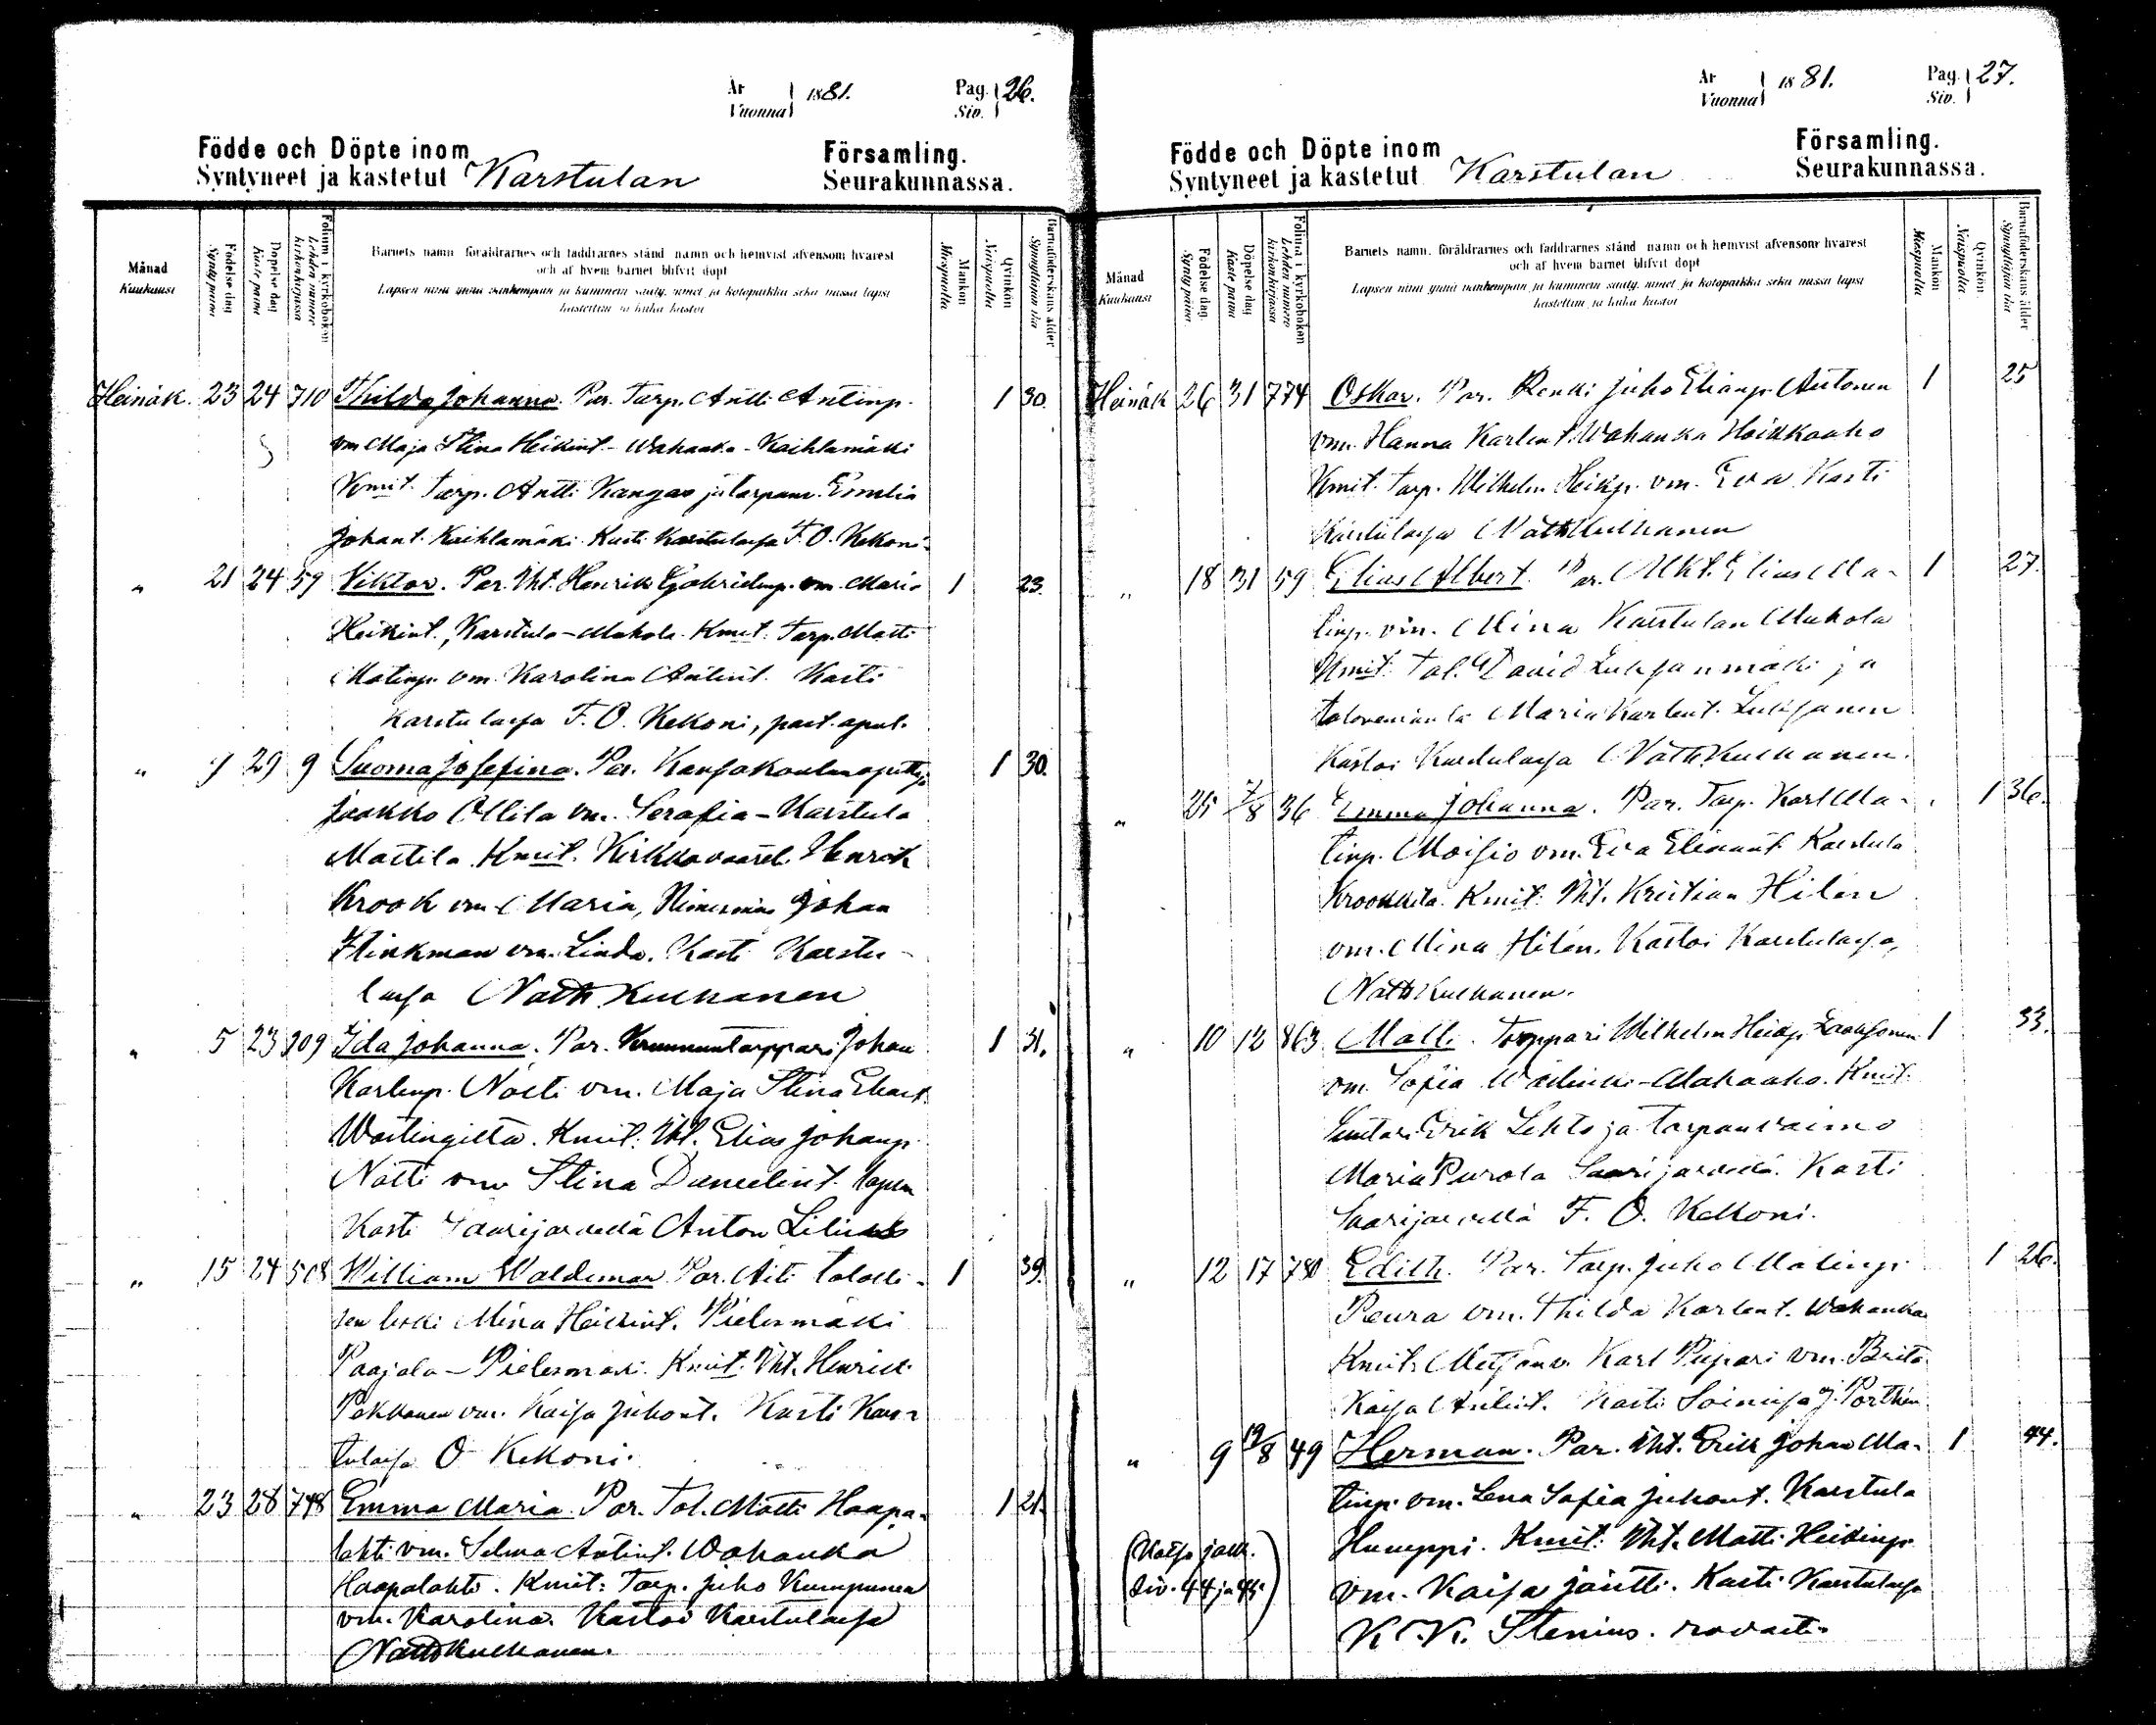 År Vuonna 1881. Pag. Siv. 26.
Födde och Döpte inom Församling.
Syntyneet ja kastetut Karstulan Seurakunnassa.
Månad Kuukausi
Födelse dag Synty päivä
Döpelse dag Kaste päivä
Folium i kyrkoboken Lehden numero kirkonkirjassa
Barnets namn föräldrarnes och faddrarnes stånd namn och hemvist äfvensom hvarest
och af hvem barnet blifvit döpt
Lapsen nimi ynnä vanhempain ja kummein sääty, nimet ja kotopaikka sekä missä lapsi
kastettiin ja kuka kastoi
Mankön Miespuolta
Qvinkön Naispuolta
Barnaföderskans ålder Synnyttäjän ikä
Heinäk. 23 24 710 Thilda Johanna. Par. Torp. Antti Antinp. 1 30.
vm Maja Stina Heikint - Wahanka - Kaihlamäki
Kmit. Torp. Antti Kangas ja torpanv. Emilia
Johant. Kaihlamäki Kasti Karstulassa F. O. Kekoni
" 21 24 59 Viktor. Par. Iht. Henrik Gabrielinp. vm. Maria 1 23.
Heikint., Karstula - Mahola. Kmit. Torp. Matti
Matinp. vm. Karolina Antint. Kasti
Karstulassa F. O. Kekoni, past. apul.
" 7 29 9 Suoma Josefina. Par. Kansakoulunopettaja 1 30.
Jaakko Ollila vm. Serafia - Karstula
Mattila. Kmit. Kirkkovaart. Henrik
Krook vm Maria, Nimismies Johan
Flinkman vm. Linda. Kasti Karstu-
lassa Nath Kulhanen
" 5 23 209 Ida Johanna. Par. Kruununtorppari Johan 1 31.
Karlinp. Nätti vm. Maja Stina Eliaet
Wastingilta. Kmit: Iht. Elias Johanp.
Nätti vm Stina Danielint. lapsen
Kasti Saarijärvellä Anton Lilius
" 15 24 508 William Waldemar Par. Äiti talolli- 1 39.
sen leski Mina Heikint. Pielesmäki
Paajala - Pielesmäki. Kmit: Iht. Henrik
Pakkanen vm. Kaisa Juhont. Kasti Kars-
tulassa O Kekoni.
" 23 28 748 Emma Maria. Par. Tal. Matti Haapa- 1 21.
lahti vm. Selma Antint. Wahanka
Haapalahti. Kmit: Torp. Juho Kumpunen
vm. Karolina. Kastoi Karstulassa
Nath Kulhanen.
År Vuonna 1881. Pag. Siv. 27.
Födde och Döpte inom Församling.
Syntyneet ja kastetut Karstulan Seurakunnassa.
Månad Kuukausi
Födelse dag Synty päivä
Döpelse dag Kaste päivä
Folium i kyrkoboken Lehden numero kirkonkirjassa
Barnets namn. föräldrarnes och faddrarnes stånd namn och hemvist äfvensom hvarest
och af hvem barnet blifvit döpt
Lapsen nimi ynnä vanhempain ja kummein sääty, nimet ja kotopaikka sekä missä lapsi
kastettiin ja kuka kastoi
Mankön Miespuolta
Qvinkön Naispuolta
Barnaföderskans ålder Synnyttäjän ikä
Heinäk 26 31 774 Oskar. Par. Renki Juho Elianp. Autonen 1 25
vm. Hanna Karlint. Wahanka Hoikkaaho
Kmit. Torp. Wilhelm Heikp. vm. Eva Kasti
Karstulassa Nath Kulhanen
" 18 31 59 Elias Albert. Par. Mkt. Elias Ma- 1 27.
tinp. vm. Mina Karstulan Mahola
Kmit: Tal. David Luksanmäki ja
talonemäntä Maria Karlint. Luksanen
Kastoi Karstulassa Nath Kulhanen.
" 25 7/8 36 Emma Johanna. Par. Torp. Karl Ma- 1 36.
tinp. Moisio vm. Eva Eliaant. Karstula
Krookkila. Kmit: Iht. Kristian Hilén
vm. Mina Hilén. Kastoi Karstulassa,
Nath Kulhanen.
" 10 12 863 Matti. Torppari Wilhelm Heikp. Laaksonen 1 33.
vm. Sofia Wastinki - Mahaaho. Kmit.
Suutari Erik Lehto ja torpanvaimo
Maria Purola Saarijärvellä. Kasti
Saarijärvellä F. O. Kekoni.
" 12 17 780 Edith. Par. Torp. Juho Matinp. 1 26.
Peura vm. Thilda Karlent. Wahanka
Kmit: Metsänv. Karl Piipari vm. Brita
Kaisa Antint. Kasti Soinissa J. Porthén
" 9 19/8 49 Herman. Par. Iht. Erik Johan Ma- 1 44.
tinp. vm. Lena Sofia Juhont. Karstula
(Katso jatk. Humppi. Kmit: Iht. Matti Heikinp.
siv. 44 ja 45.) vm. Kaisa Jäntti. Kasti Karstulassa
K. K. Stenius. rovasti.